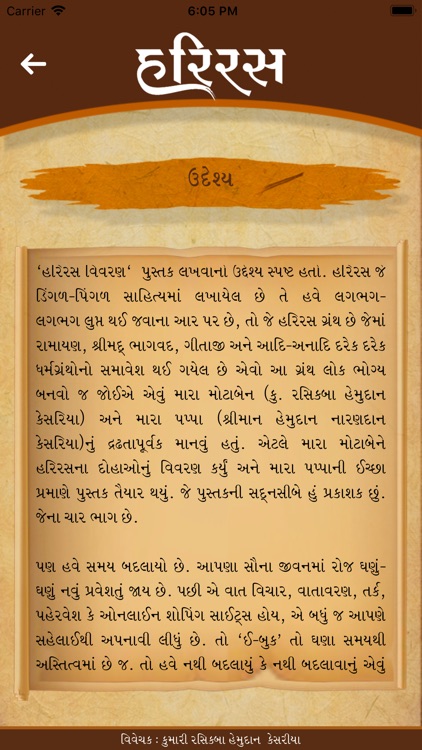 Carrier 6:05 PM
હરિરસ
ઉદેશ્ય
‘હરિરસ વિવરણ‘ પુસ્તક લખવાનો ઉદ્દેશ્ય સ્પષ્ટ હતો. હરિરસ જે
ડિંગળ-પિંગળ સાહિત્યમાં લખાયેલ છે તે હવે લગભગ-
લગભગ લુપ્ત થઈ જવાના આર પર છે, તો જે હરિરસ ગ્રંથ છે જેમાં
રામાયણ, શ્રીમદ્ ભાગવદ, ગીતાજી અને આદિ-અનાદિ દરેક દરેક
ધર્મગ્રંથોનો સમાવેશ થઈ ગયેલ છે એવો આ ગ્રંથ લોક ભોગ્ય
બનવો જ જોઈએ એવું મારા મોટાબેન (કુ. રસિકબા હેમુદાન
કેસરિયા) અને મારા પપ્પા (શ્રીમાન હેમુદાન નારણદાન
કેસરિયા)નું દ્રઢતાપૂર્વક માનવું હતું. એટલે મારા મોટાબેને
હરિરસના દોહાઓનું વિવરણ કર્યું અને મારા પપ્પાની ઈચ્છા
પ્રમાણે પુસ્તક તૈયાર થયું. જે પુસ્તકની સદ્નસીબે હું પ્રકાશક છું.
જેના ચાર ભાગ છે.
પણ હવે સમય બદલાયો છે. આપણા સૌના જીવનમાં રોજ ઘણું-
ઘણું નવું પ્રવેશતું જાય છે. પછી એ વાત વિચાર, વાતાવરણ, તર્ક,
પહેરવેશ કે ઓનલાઈન શોપિંગ સાઈટ્સ હોય, એ બધું જ આપણે
સહેલાઈથી અપનાવી લીધું છે. તો ‘ઈ-બુક’ તો ઘણા સમયથી
અસ્તિત્વમાં છે જ. તો હવે નથી બદલાયું કે નથી બદલાવાનું એવું
વિવેચક : કુમારી રસિકબા હેમુદાન કેસરીયા